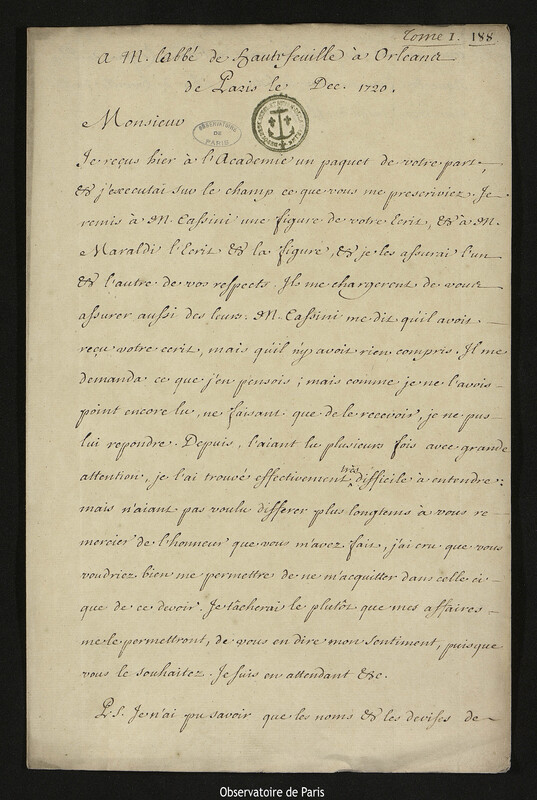 Tome I. 188
A M. l'abbé de Hautefeuille à Orleans
de Paris le Dec. 1720.
Monsieur
OBSERVATOIRE DE PARIS
Je reçus hier à l'Academie un paquet de votre part,
& j'executai sur le champ ce que vous me prescriviez. Je
remis à M. Cassini une figure de votre Ecrit, & à M.
Maraldi l'Ecrit & la figure, & je les assurai l'un
& l'autre de vos respects. Ils me chargerent de vous
assurer aussi des leurs. M. Cassini me dit qu'il avoit
reçu votre ecrit, mais qu'il n'y avoit rien compris. Il me
demanda ce que j'en pensois ; mais comme je ne l'avois
point encore lu, ne faisant que de le recevoir, je ne pus
lui repondre. Depuis, l'aiant lu plusieurs fois avec grande
attention, je l'ai trouvé effectivement très difficile à entendre :
mais n'aiant pas voulu differer plus longtems à vous re-
mercier de l'honneur que vous m'avez fait, j'ai cru que vous
voudriez bien me permettre de ne m'acquitter dans celle ci
que de ce devoir. Je tâcherai le plutôt que mes affaires
me le permettront, de vous en dire mon sentiment, puisque
vous le souhaitez. Je suis en attendant &c.
P.S. Je n'ai pu savoir que les noms & les devises de
Observatoire de Paris